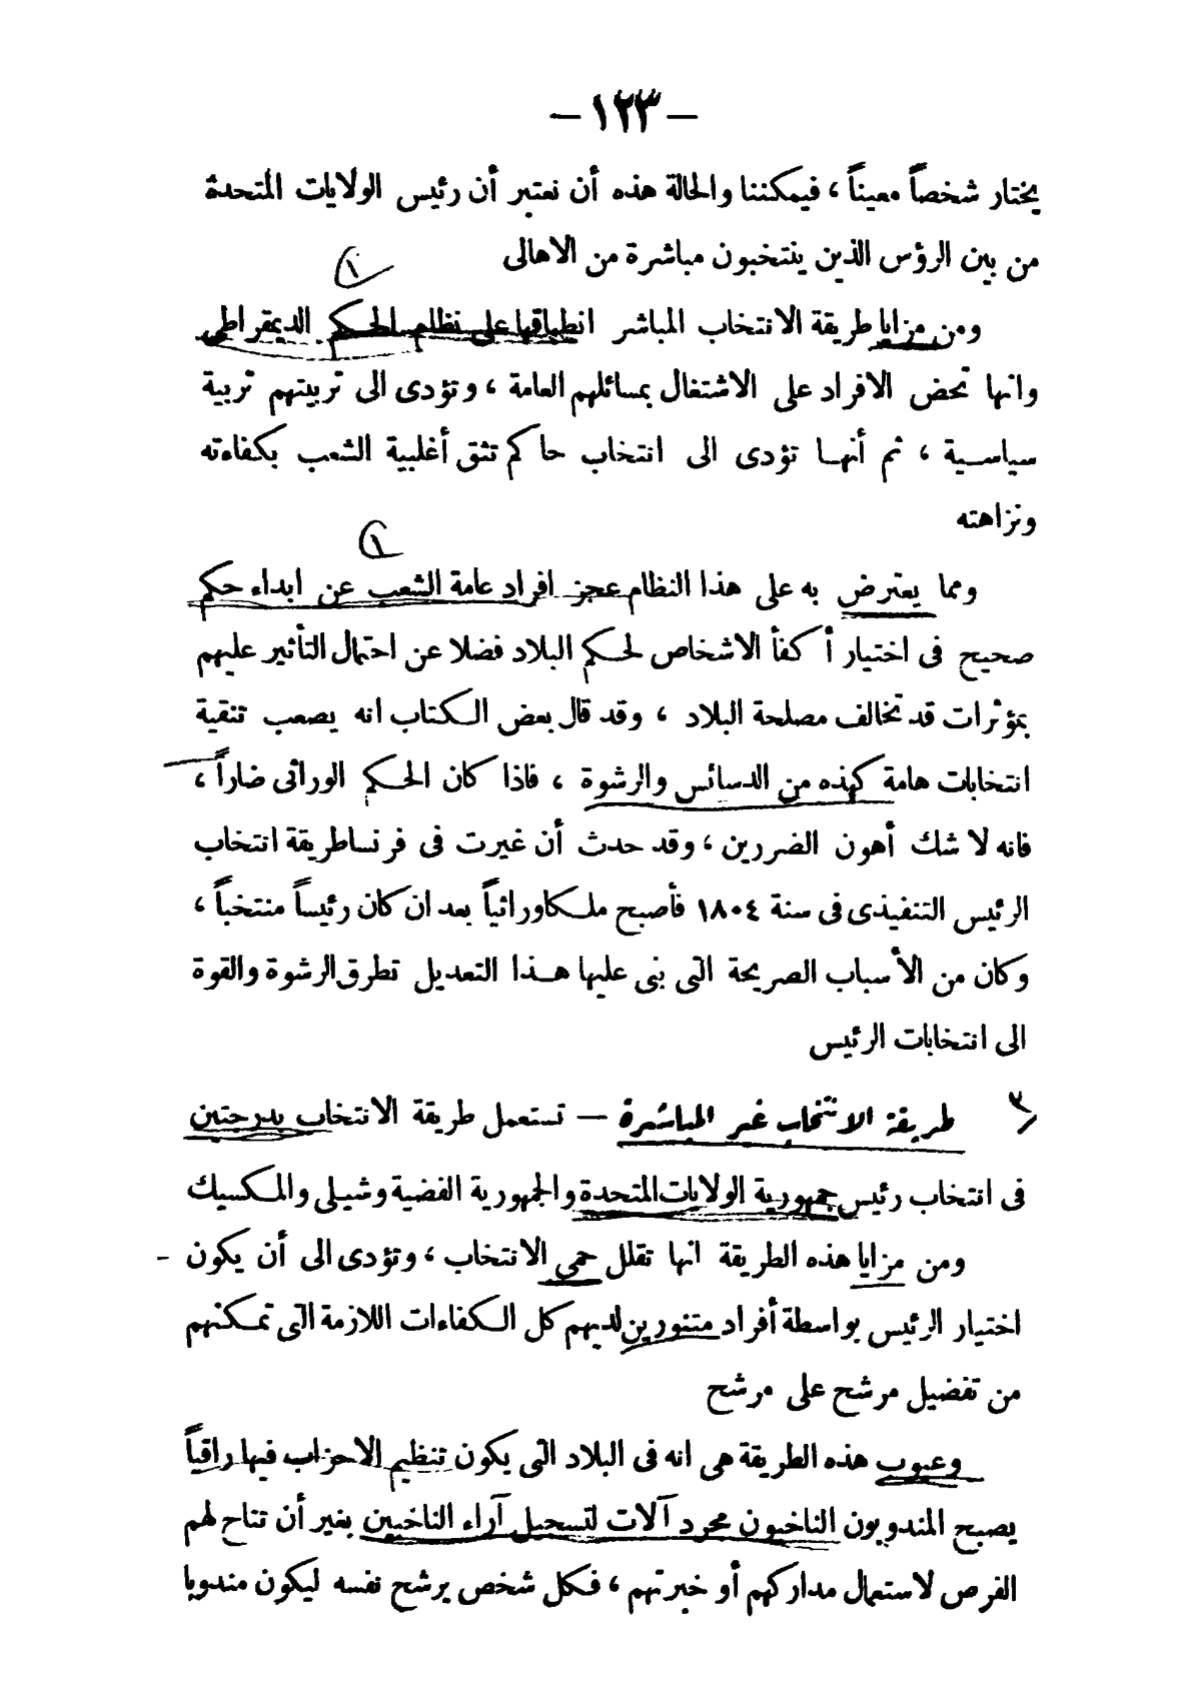 — ١٢٣ —
يختار شخصاً معيناً ، فيمكننا والحالة هذه أن نعتبر أن رئيس الولايات المتحدة
من بين الرؤس الذين ينتخبون مباشرة من الاهالى
١
ومن مزايا طريقة الانتخاب المباشر انطباقها على نظام الحكم الديمقراطى
وانها تحض الافراد على الاشتغال بمسائلهم العامة ، وتؤدى الى تربيتهم تربية
سياسية ، ثم أنها تؤدى الى انتخاب حاكم تثق أغلبية الشعب بكفاءته
ونزاهته
ومما يعترض به على هذا النظام عجز افراد عامة الشعب عن ابداء حكم
صحيح فى اختيار أكفأ الاشخاص لحكم البلاد فضلا عن احتمال التأثير عليهم
بمؤثرات قد تخالف مصلحة البلاد ، وقد قال بعض الكتاب انه يصعب تنقية
انتخابات هامة كهذه من الدسائس والرشوة ، فاذا كان الحكم الوراثى ضاراً ،
فانه لا شك أهون الضررين ، وقد حدث أن غيرت فى فرنسا طريقة انتخاب
الرئيس التنفيذى فى سنة ١٨٠٤ فأصبح ملكا وراثياً بعد ان كان رئيساً منتخباً ،
وكان من الأسباب الصريحة التى بنى عليها هذا التعديل تطرق الرشوة والقوة
الى انتخابات الرئيس
طريقة الانتخاب غير المباشرة — تستعمل طريقة الانتخاب بدرجتين
فى انتخاب رئيس جمهورية الولايات المتحدة والجمهورية الفضية وشيلى والمكسيك
ومن مزايا هذه الطريقة انها تقلل حمى الانتخاب ، وتؤدى الى أن يكون
اختيار الرئيس بواسطة أفراد متنورين لديهم كل الكفاءات اللازمة التى تمكنهم
من تفضيل مرشح على مرشح
وعيوب هذه الطريقة هى انه فى البلاد التى يكون تنظيم الاحزاب فيها راقياً
يصبح المندوبون الناخبون مجرد آلات لتسجيل آراء الناخبين بغير أن تتاح لهم
الفرص لاستعمال مداركهم أو خبرتهم ، فكل شخص يرشح نفسه ليكون مندوبا